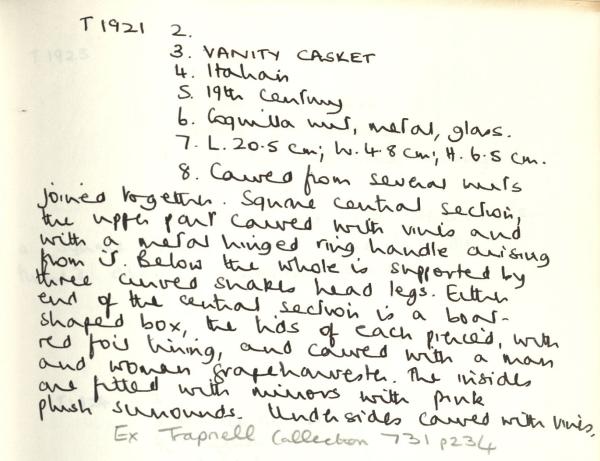 T 1921 2.
3. VANITY CASKET
4. Italian
5. 19th Century
6. Coquilla nut, metal, glass.
7. L. 20.5 cm; W. 4.8 cm; H. 6.5 cm.
8. Carved from several nuts
joined together. Square central section,
the upper part carved with vines and
with a metal hinged ring handle arising
from it. Below the whole is supported by
three curved snakes head legs. Either
end of the central section is a boat-
shaped box, the lids of each pierced, with
red foil lining, and carved with a man
and woman grapeharvester. The insides
are fitted with mirrors with pink
plush surrounds. Undersides carved with vines.
Ex Trapnell Collection 731 p234